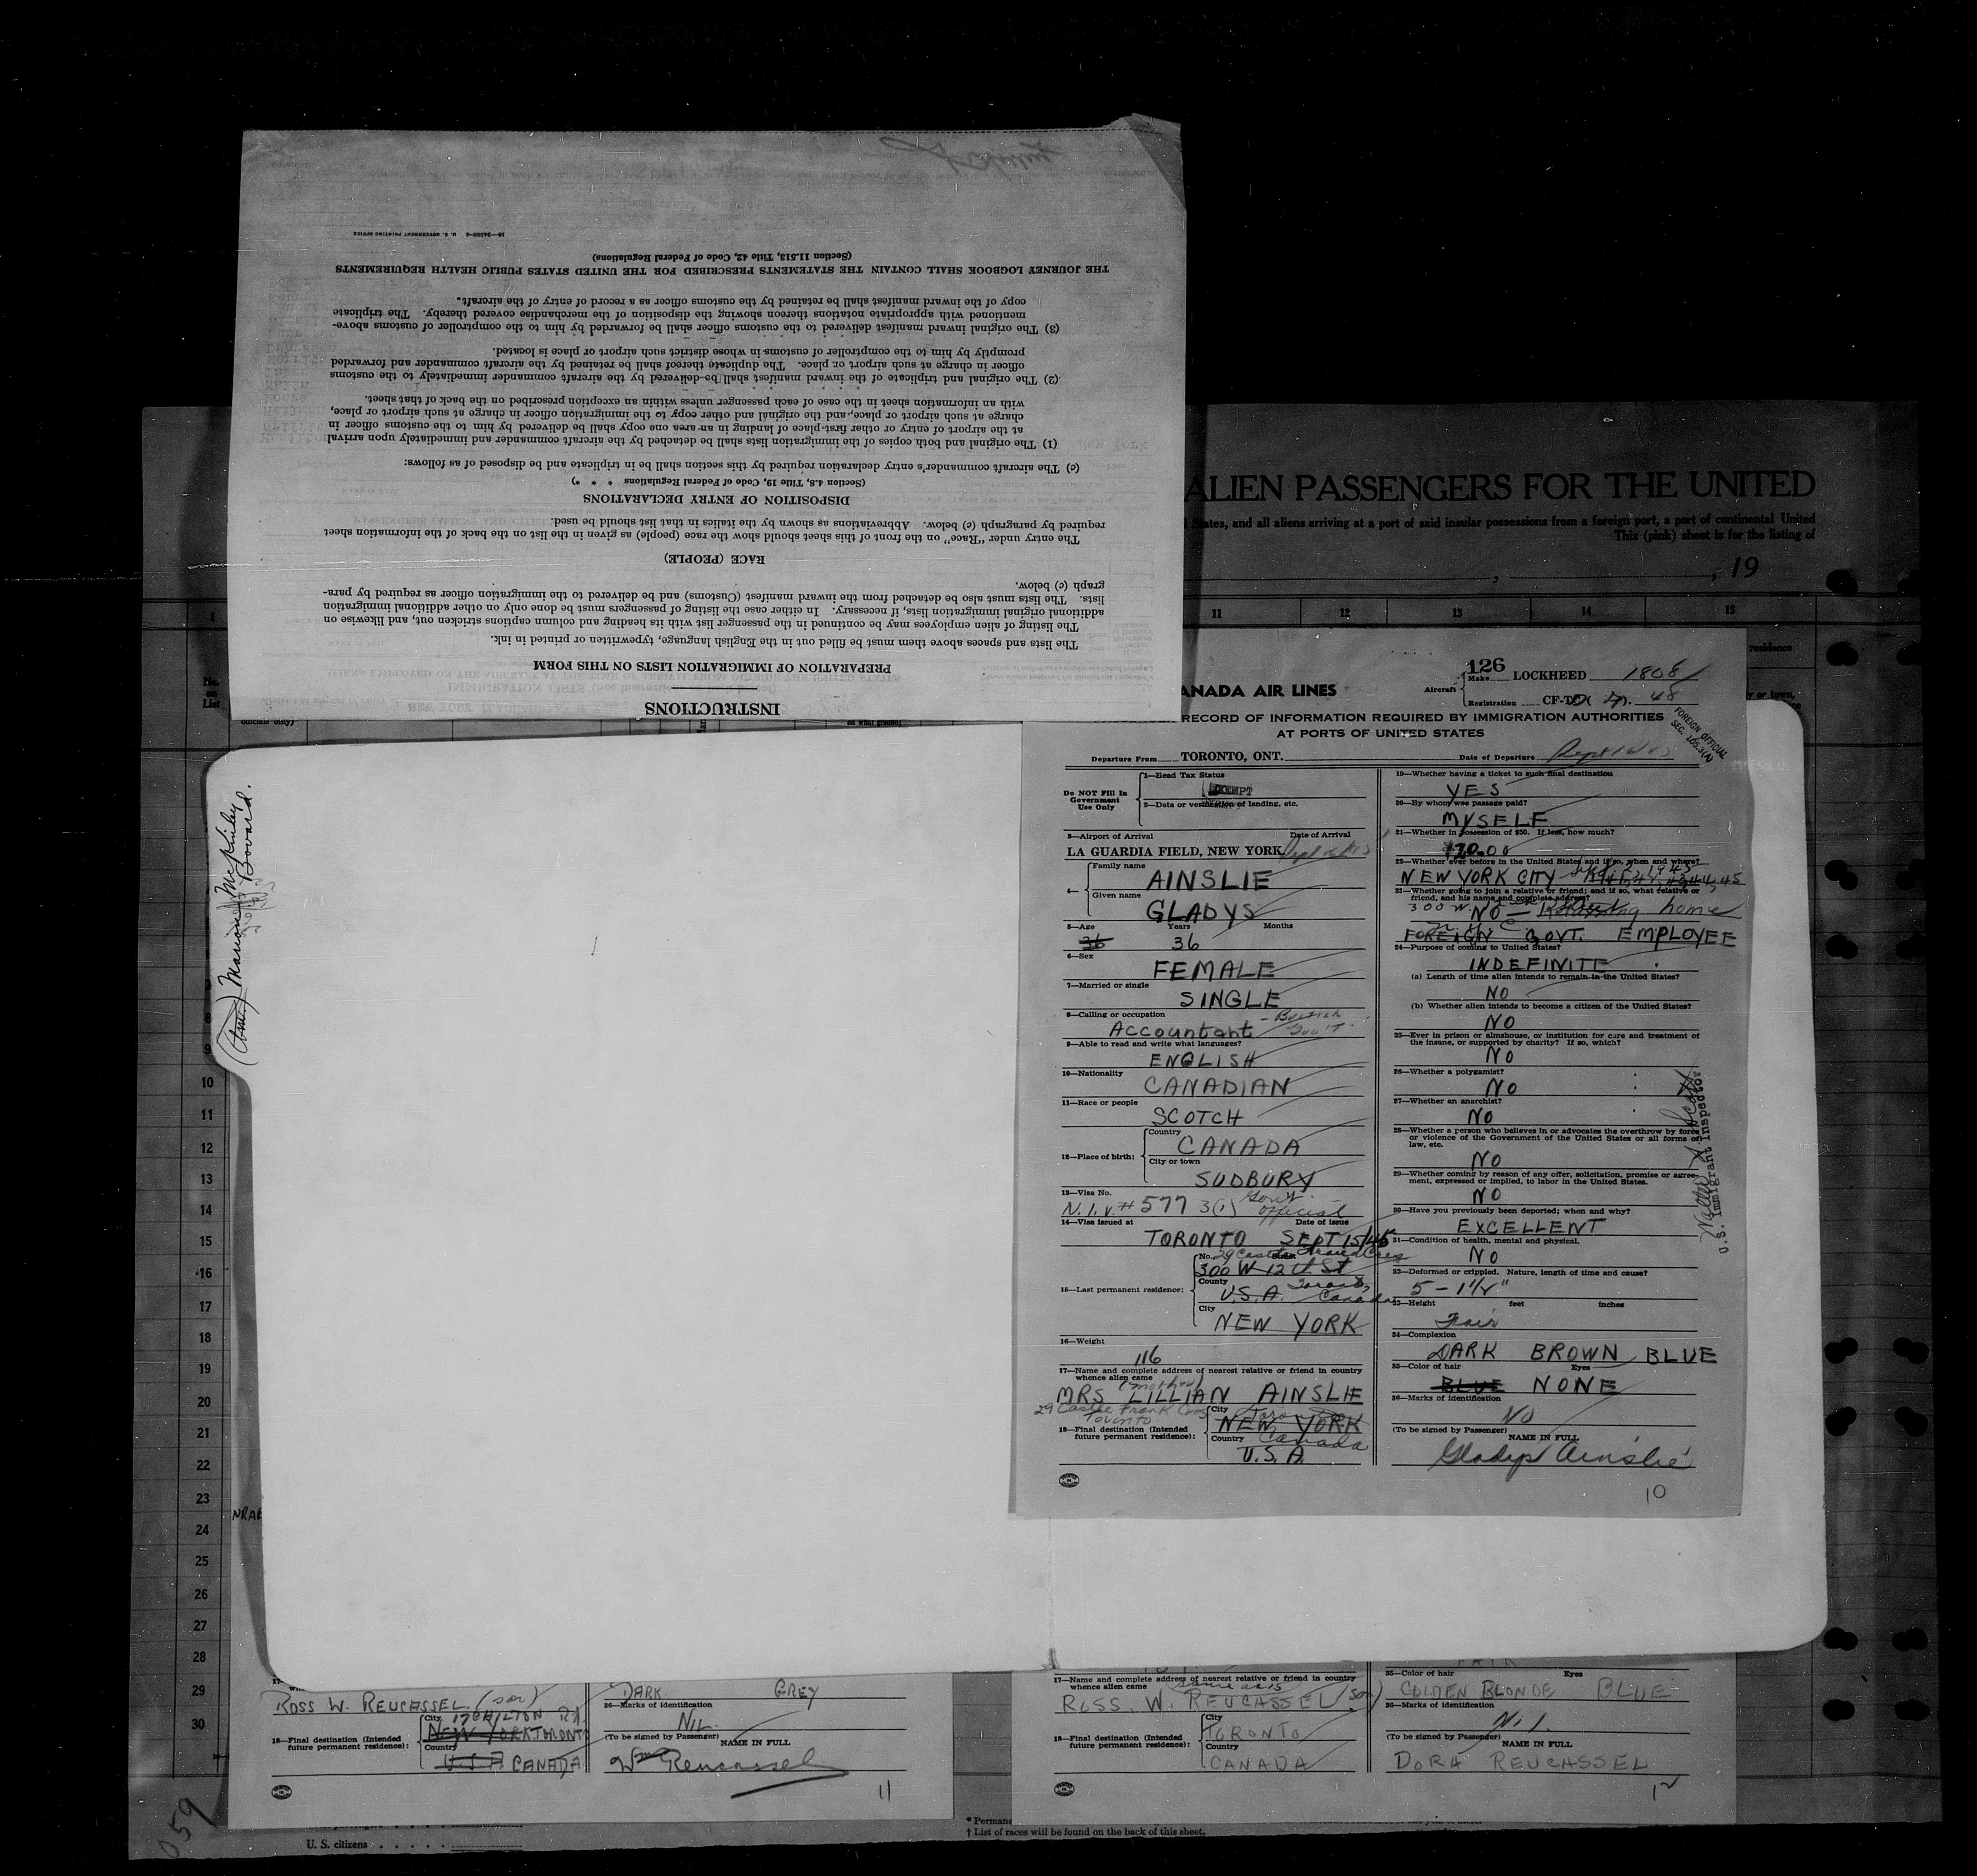 INSTRUCTIONS
PREPARATION OF IMMIGRATION LISTS ON THIS FORM
The lists and spaces above them must be filled out in the English language, typewritten or printed in ink.
The listing of alien employees may be continued in the passenger list with its heading and column captions stricken out, and likewise on
additional original immigration lists, if necessary. In either case the listing of passengers must be done only on other additional immigration
lists. The lists must also be detached from the inward manifest (Customs) and be delivered to the immigration officer as required by para-
graph (c) below.
RACE (PEOPLE)
The entry under "Race" on the front of this sheet should show the race (people) as given in the list on the back of the information sheet
required by paragraph (c) below. Abbreviations as shown by the italics in that list should be used.
DISPOSITION OF ENTRY DECLARATIONS
(Section 4.8, Title 19, Code of Federal Regulations * * *)
(c) The aircraft commander's entry declaration required by this section shall be in triplicate and be disposed of as follows:
(1) The original and both copies of the immigration lists shall be detached by the aircraft commander and immediately upon arrival
at the airport of entry or other first-place of landing in an area one copy shall be delivered by him to the customs officer in
charge at such airport or place, and the original and other copy to the immigration officer in charge at such airport or place,
with an information sheet in the case of each passenger unless within an exception prescribed on the back of that sheet.
(2) The original and triplicate of the inward manifest shall be delivered by the aircraft commander immediately to the customs
officer in charge at such airport or place. The duplicate thereof shall be retained by the aircraft commander and forwarded
promptly by him to the comptroller of customs in whose district such airport or place is located.
(3) The original inward manifest delivered to the customs officer shall be forwarded by him to the comptroller of customs above-
mentioned with appropriate notations thereon showing the disposition of the merchandise covered thereby. The triplicate
copy of the inward manifest shall be retained by the customs officer as a record of entry of the aircraft.
THE JOURNEY LOGBOOK SHALL CONTAIN THE STATEMENTS PRESCRIBED FOR THE UNITED STATES PUBLIC HEALTH REQUIREMENTS
(Section 11.513, Title 42, Code of Federal Regulations)
U. S. GOVERNMENT PRINTING OFFICE
ALIEN PASSENGERS FOR THE UNITED
States, and all aliens arriving at a port of said insular possessions from a foreign port, a port of continental United
This (pink) sheet is for the listing of
, 19
11 12 13 14 15
1
No. on List
ANADA AIR LINES
Aircraft
126
Make LOCKHEED 1808
Registration CF-T
RECORD OF INFORMATION REQUIRED BY IMMIGRATION AUTHORITIES
AT PORTS OF UNITED STATES
FOREIGN OFFICIAL
Departure From TORONTO, ONT.
Date of Departure
Do NOT Fill In Government Use Only
1—Head Tax Status
EXEMPT
2—Data or verification of landing, etc.
3—Airport of Arrival Date of Arrival
LA GUARDIA FIELD, NEW YORK
4—
Family name
AINSLIE
Given name
GLADYS
5—Age Years Months
36 36
6—Sex
FEMALE
7—Married or single
SINGLE
8—Calling or occupation
Accountant - British Gov't.
9—Able to read and write what languages?
ENGLISH
10—Nationality
CANADIAN
11—Race or people
SCOTCH
12—Place of birth:
Country
CANADA
City or town
SUDBURY
13—Visa No.
N.I.V. # 577 3(1) Gov't official
14—Visa issued at Date of issue
TORONTO SEPT 15/45
15—Last permanent residence:
No. 29 Castle Frank Cres
300 W 12th St
County
U.S.A. Toronto Canada
City
NEW YORK
16—Weight
116
17—Name and complete address of nearest relative or friend in country
whence alien came
(mother)
MRS LILLIAN AINSLIE
29 Castle Frank Cres
Toronto
18—Final destination (Intended
future permanent residence):
City
NEW YORK Toronto
Country Canada
U.S.A.
19—Whether having a ticket to such final destination
YES
20—By whom was passage paid?
MYSELF
21—Whether in possession of $50. If less, how much?
22—Whether ever before in the United States and if so, when and where?
NEW YORK CITY
21—Whether going to join a relative or friend; and if so, what relative or
friend, and his name and complete address?
300 W
NO — Returning home
FOREIGN GOVT. EMPLOYEE
24—Purpose of coming to United States?
INDEFINITE
(a) Length of time alien intends to remain in the United States?
NO
(b) Whether alien intends to become a citizen of the United States?
NO
25—Ever in prison or almshouse, or institution for care and treatment of
the insane, or supported by charity? If so, which?
NO
26—Whether a polygamist?
NO
27—Whether an anarchist?
NO
28—Whether a person who believes in or advocates the overthrow by force
or violence of the Government of the United States or all forms of
law, etc.
NO
29—Whether coming by reason of any offer, solicitation, promise or agree-
ment, expressed or implied, to labor in the United States.
NO
30—Have you previously been deported; when and why?
EXCELLENT
31—Condition of health, mental and physical.
NO
32—Deformed or crippled. Nature, length of time and cause?
5 - 1½"
33—Height feet inches
Fair
34—Complexion
DARK BROWN BLUE
35—Color of hair Eyes
BLUE NONE
36—Marks of identification
NO
(To be signed by Passenger)
NAME IN FULL
Gladys Ainslie
10
U.S. Immigrant Inspector
8
9
10
11
12
13
14
15
16
17
18
19
20
21
22
23
24
25
26
27
28
29
30
ROSS W. REUCASSEL (son)
18—Final destination (Intended
future permanent residence):
City 17 CHILTON RD
NEW YORK TORONTO
Country
U S A CANADA
DARK GREY
36—Marks of identification
NIL.
(To be signed by Passenger)
NAME IN FULL
Wm Reucassel
11
17—Name and complete address of nearest relative or friend in country
whence alien came same as 15
ROSS. W. REUCASSEL (son)
18—Final destination (Intended
future permanent residence):
City
TORONTO
Country
CANADA
FAIR
35—Color of hair Eyes
GOLDEN BLONDE BLUE
36—Marks of identification
Nil.
(To be signed by Passenger)
NAME IN FULL
DORA REUCASSEL
12
059
U. S. citizens
* Perman
† List of races will be found on the back of this sheet.